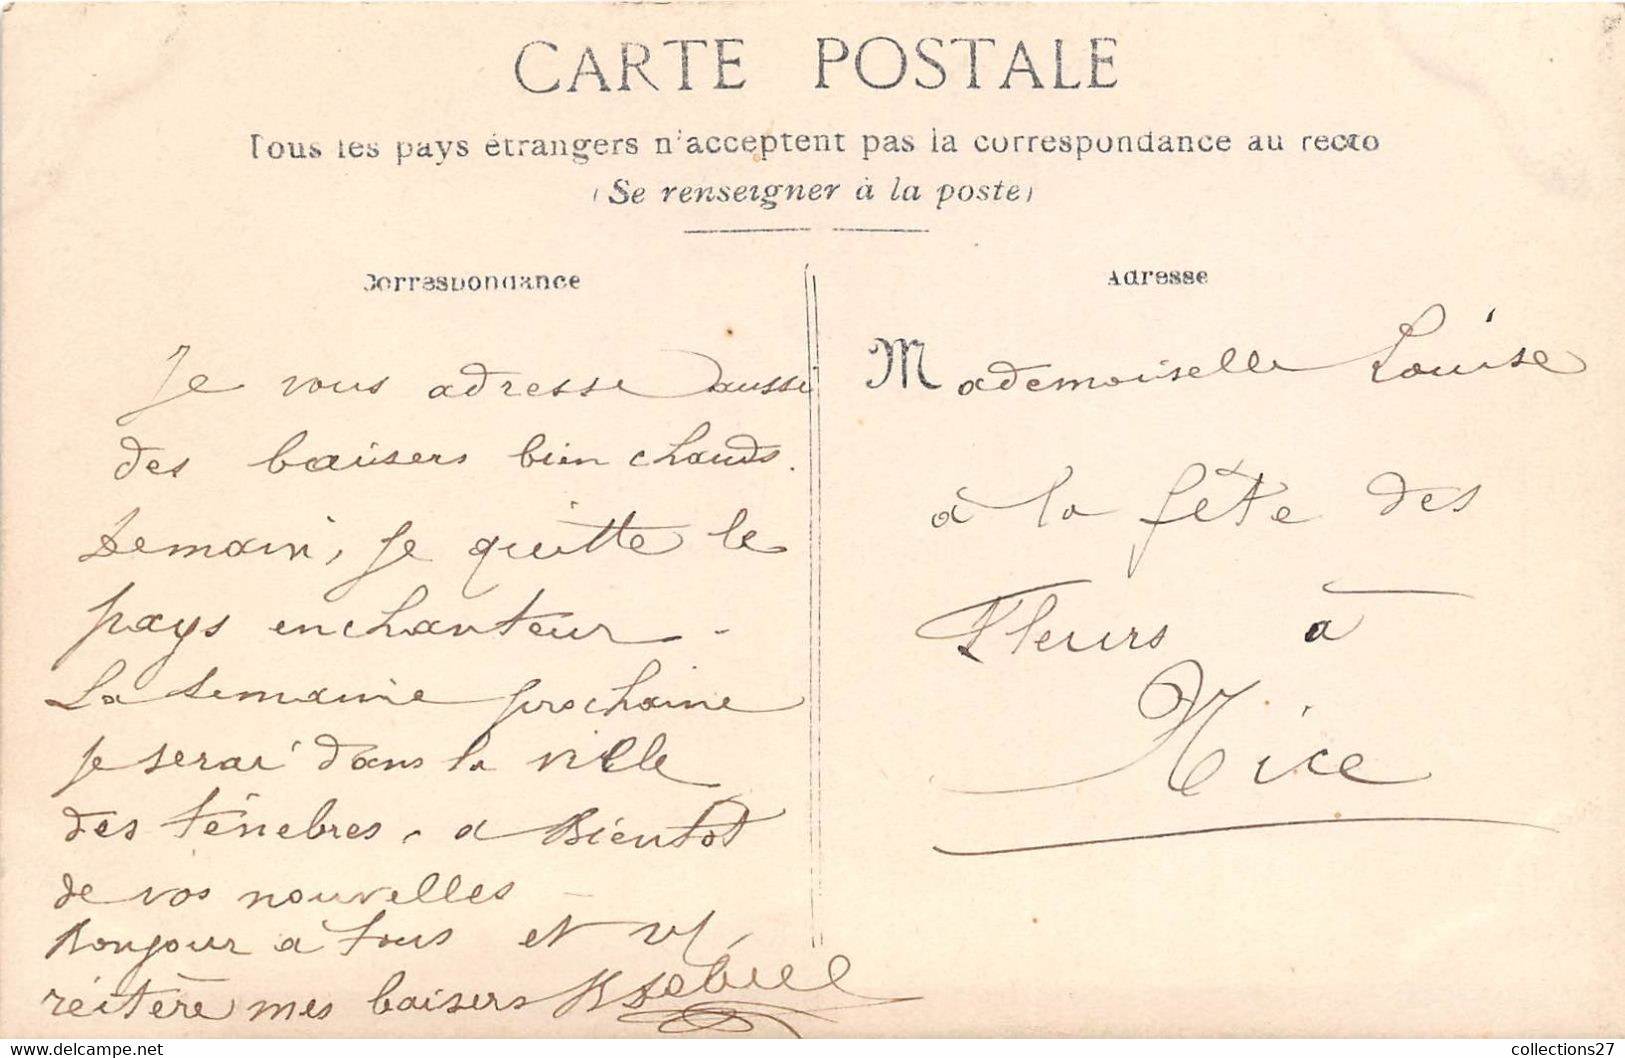 CARTE POSTALE
Tous les pays étrangers n'acceptent pas la correspondance au recto
(Se renseigner à la poste)
Correspondance
Je vous adresse aussi
des baisers bien chauds.
Demain, je quitte le
pays enchanteur -
La semaine prochaine
je serai dans la ville
des ténèbres. a Bientot
de vos nouvelles -
Bonjour a tous et
réitère mes baisers
Adresse
Mademoiselle Louise
à la fête des
Fleurs à
Nice
collections27